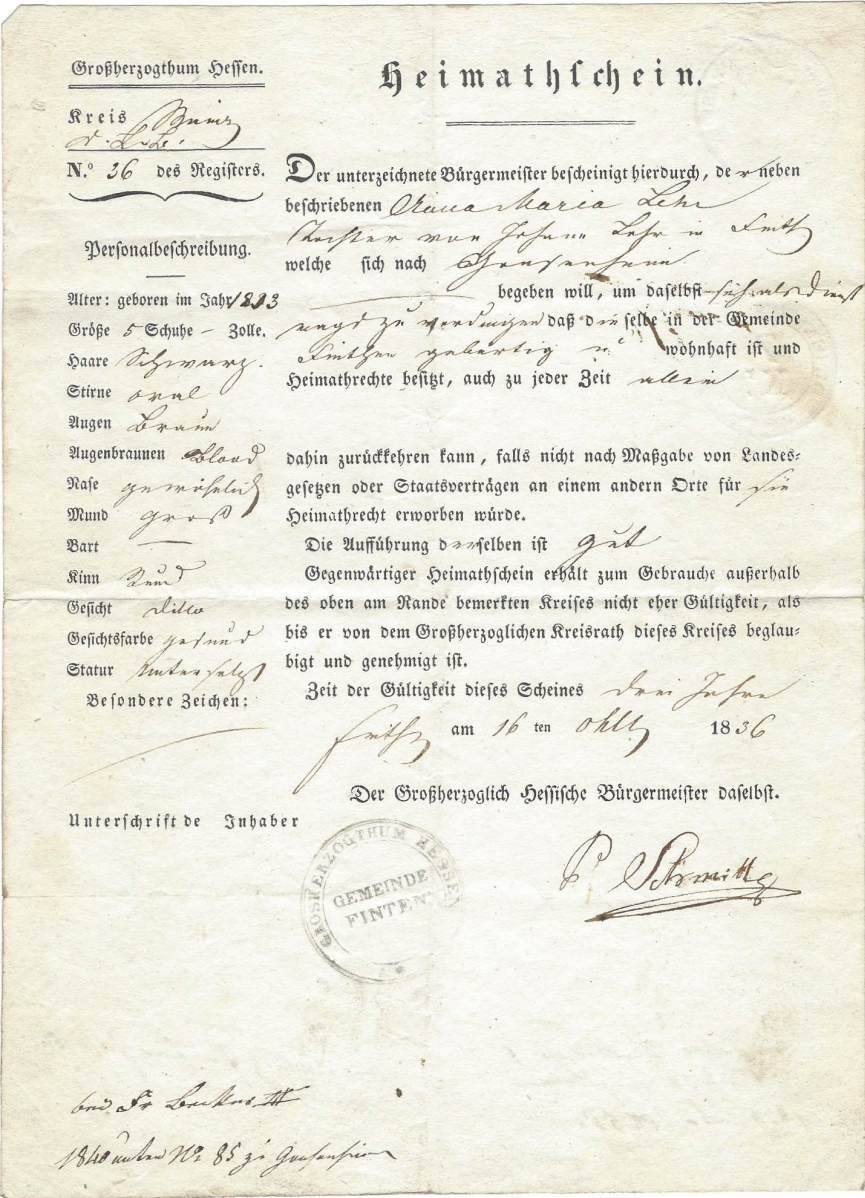 Großherzogthum Hessen.
Kreis Mainz
N.º 36 des Registers.
Personalbeschreibung.
Alter: geboren im Jahr 1813
Größe 5 Schuhe – Zolle.
Haare Schwarz.
Stirne oval
Augen Braun
Augenbraunen Blond
Nase gewöhnlich
Mund groß
Bart —
Kinn Rund
Gesicht ditto
Gesichtsfarbe gesund
Statur Untersetzt
Besondere Zeichen:
Unterschrift de Inhaber
Heimathschein.
Der unterzeichnete Bürgermeister bescheinigt hierdurch, de r neben
beschriebenen Anna Maria Lehr
Tochter von Johann Lehr in
welche sich nach Gonsenheim
begeben will, um daselbst sich als Dienst
magd zu verdingen daß die selbe in der Gemeinde
Finthen gebürtig u wohnhaft ist und
Heimathrechte besitzt, auch zu jeder Zeit allein
dahin zurückkehren kann, falls nicht nach Maßgabe von Landes-
gesetzen oder Staatsverträgen an einem andern Orte für sie
Heimathrecht erworben würde.
Die Aufführung derselben ist gut
Gegenwärtiger Heimathschein erhält zum Gebrauche außerhalb
des oben am Rande bemerkten Kreises nicht eher Gültigkeit, als
bis er von dem Großherzoglichen Kreisrath dieses Kreises beglau-
bigt und genehmigt ist.
Zeit der Gültigkeit dieses Scheines drei Jahre
am 16 ten 1836
Der Großherzoglich Hessische Bürgermeister daselbst.
Schmitt
GROSHERZOGTHUM HESSEN
GEMEINDE
FINTEN
bei Fr III
1840 unter Nr. 85 zu Gonsenheim